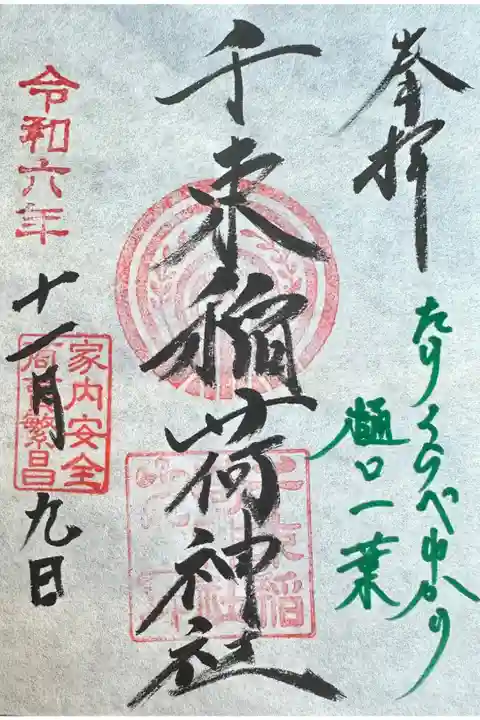 奉拝
たけくらべゆかり
樋口一葉
千束稲荷神社
令和六年
十一月九日
家内安全
商売繁昌